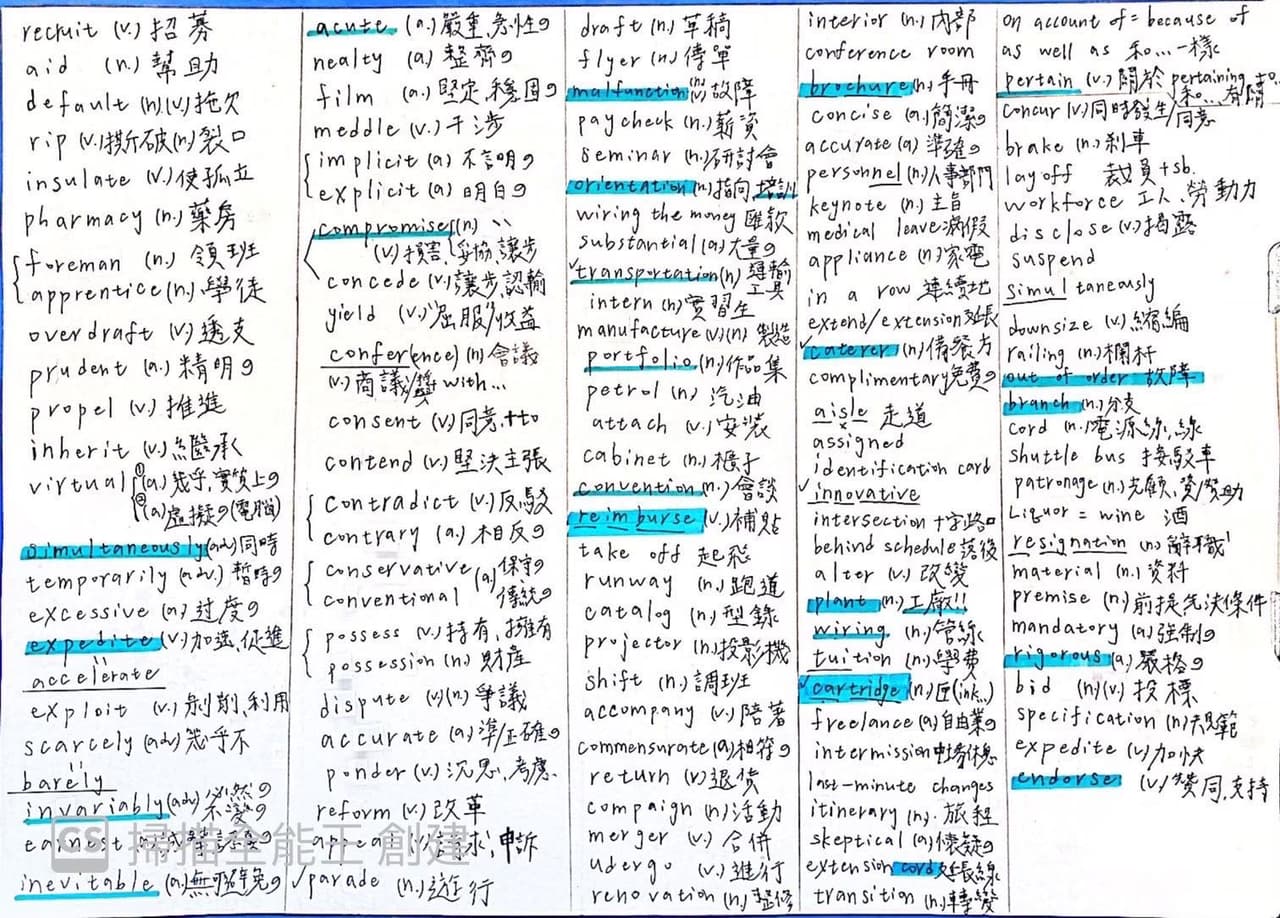 recruit (v.) 招募
aid (n.) 幫助
default (n).(v.) 拖欠
rip (v.) 撕破 (n) 裂口
insulate (v.) 使孤立
pharmacy (n.) 藥房
foreman (n.) 領班
apprentice (n.) 學徒
overdraft (v.) 透支
prudent (a.) 精明的
propel (v.) 推進
inherit (v.) 繼承
virtual ① (a.) 幾乎,實質上的
② (a) 虛擬的 (電腦)
simultaneously (adv) 同時
temporarily (adv.) 暫時的
excessive (a) 过度的
expedite (v.) 加速,促進
accelerate
exploit (v.) 剝削、利用
scarcely (adv) 幾乎不
barely
invariably (adv) 必然的 不變的
earnest
inevitable (a.) 無可避免的
acute (a.) 嚴重,急性的
nealty (a) 整齊的
film (a.) 堅定,穩固的
meddle (v.) 干涉
implicit (a) 不言明的
explicit (a) 明白的
compromise (n) 、、
(v.) 損害、妥協,讓步
concede (v.) 讓步,認輸
yield (v.) 屈服/收益
confer(ence) (n) 會議
(v.) 商議/獎 with...
consent (v.) 同意,+to
contend (v.) 堅決主張
contradict (v.) 反駁
contrary (a.) 相反的
conservative (a) 保守的
conventional 傳統的
possess (v.) 持有,擁有
possession (n) 財產
dispute (v)(n) 爭議
accurate (a) 準/正確的
ponder (v.) 沉思,考慮
reform (v.) 改革
appeal (v.) 請求,申訴
✓parade (n.) 遊行
draft (n.) 草稿
flyer (n) 傳單
malfunction (n)(v) 故障
paycheck (n.) 薪資
seminar (n.) 研討會
orientation (n.) 指向,培訓
wiring the money 匯款
substantial (a) 大量的
✓transportation (n) 運輸工具
intern (n) 實習生
manufacture (v)(n) 製造
portfolio (n.) 作品集
petrol (n) 汽油
attach (v.) 安裝
cabinet (n.) 櫃子
convention (n.) 會談
reimburse (v.) 補貼
take off 起飛
runway (n.) 跑道
catalog (n.) 型錄
projector (n) 投影機
shift (n.) 調班
accompany (v.) 陪著
commensurate (a) 相符的
return (v.) 退貨
compaign (n) 活動
merger (v.) 合併
udergo (v.) 進行
renovation (n.) 整修
interior (n.) 內部
conference room
brochure (n.) 手冊
concise (a.) 簡潔的
accurate (a) 準確的
personnel (n) 人事部門
keynote (n.) 主旨
medical leave 病假
appliance (n) 家電
in a row 連續地
extend/extension 延長
✓caterer (n) 備餐方
complimentary 免費的
aisle 走道
assigned
identification card
✓innovative
intersection 十字路口
behind schedule 落後
alter (v.) 改變
plant (n.) 工廠!!
wiring. (n.) 管線
tuition (n.) 學費
✓cartridge (n) 匣(ink...)
freelance (a) 自由業的
intermission 中場休息
last-minute changes
itinerary (n). 旅程
skeptical (a) 懷疑的
extension cord 延長線
transition (n.) 轉變
on account of = because of
as well as 和...一樣
pertain (v.) 關於 pertaining to..
和...有關
concur (v) 同時發生/同意
brake (n.) 剎車
layoff 裁員+sb.
workforce 工人、勞動力
disclose (v.) 揭露
suspend
simultaneously
downsize (v.) 縮編
railing (n.) 欄杆
out of order 故障
branch (n.) 分支
cord (n.) 電源線,線
shuttle bus 接駁車
patronage (n.) 光顧、資/贊助
Liquor = wine 酒
resignation (n) 辭職
material (n.) 資料
premise (n) 前提先決條件
mandatory (a) 強制的
rigorous (a) 嚴格的
bid (n)(v.) 投標
specification (n) 規範
expedite (v) 加快
endorse (v.) 贊同,支持
CS 掃描全能王 創建